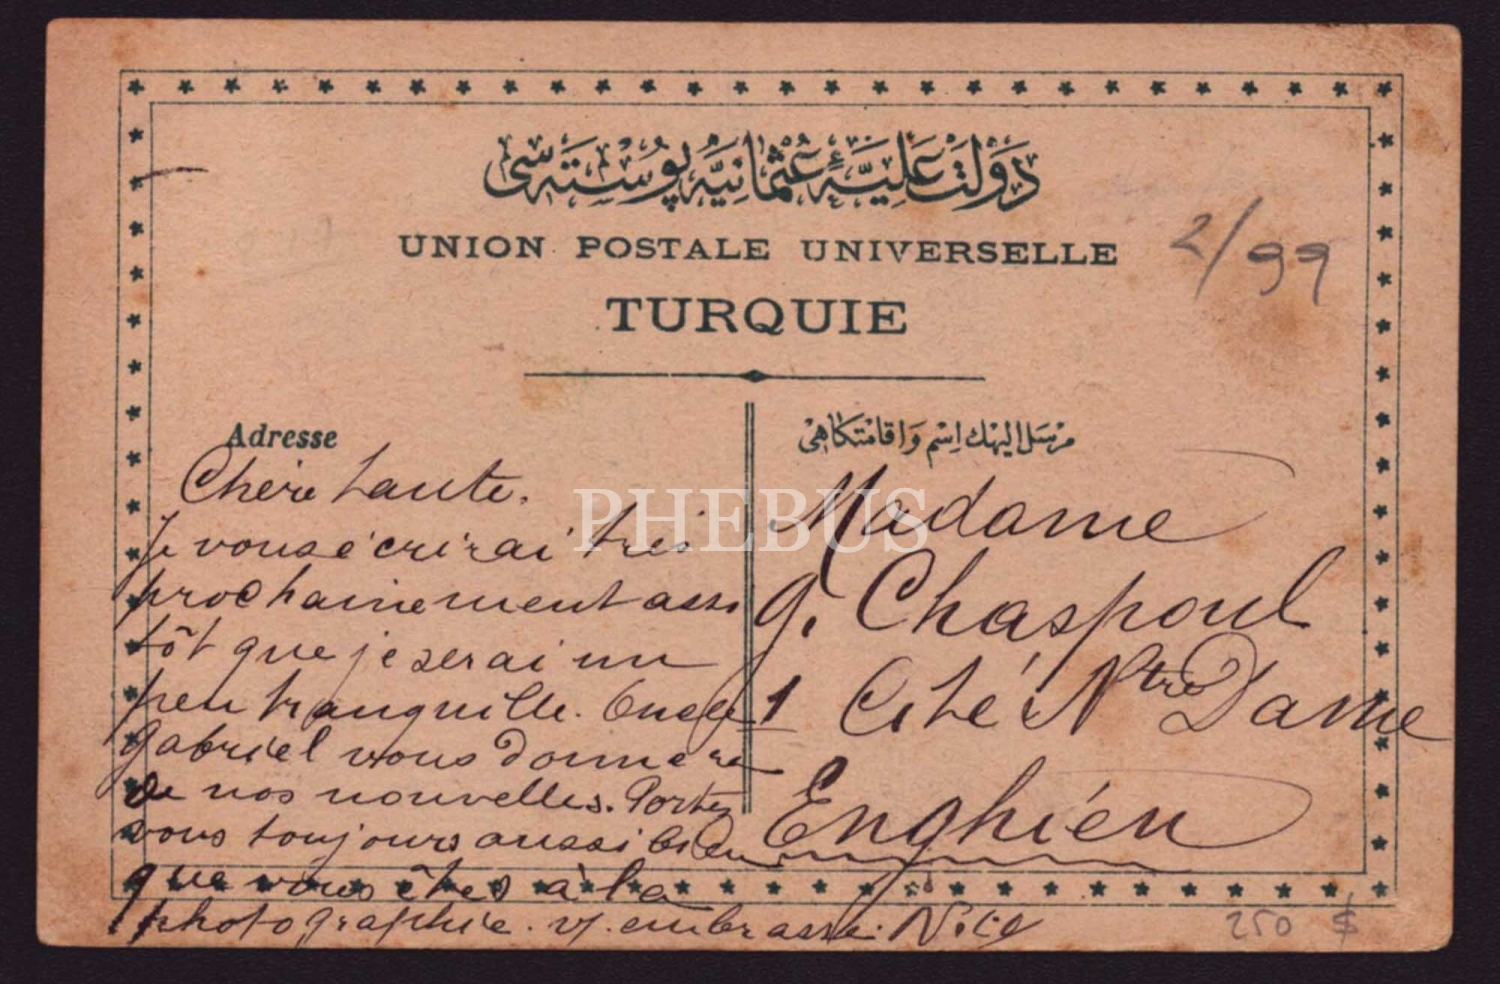 دَوْلَتِ عَلِيَّۀِ عُثْمَانِيَّه پُوسْتَه سِى
UNION POSTALE UNIVERSELLE
TURQUIE
2/99
Adresse
Chère tante.
Je vous écrirai très
prochainement assi
tôt que je serai un
peu tranquille. Oncle
Gabriel vous donnera
de nos nouvelles. Portez
vous toujours aussi bien
que vous êtes à la
photographie. v. embrasse.
مرسل اليهك اسم و اقامتكاهى
Madame
G. Chaspoul
1 Cité Ntre Dame
Enghien
250 $
PHEBUS